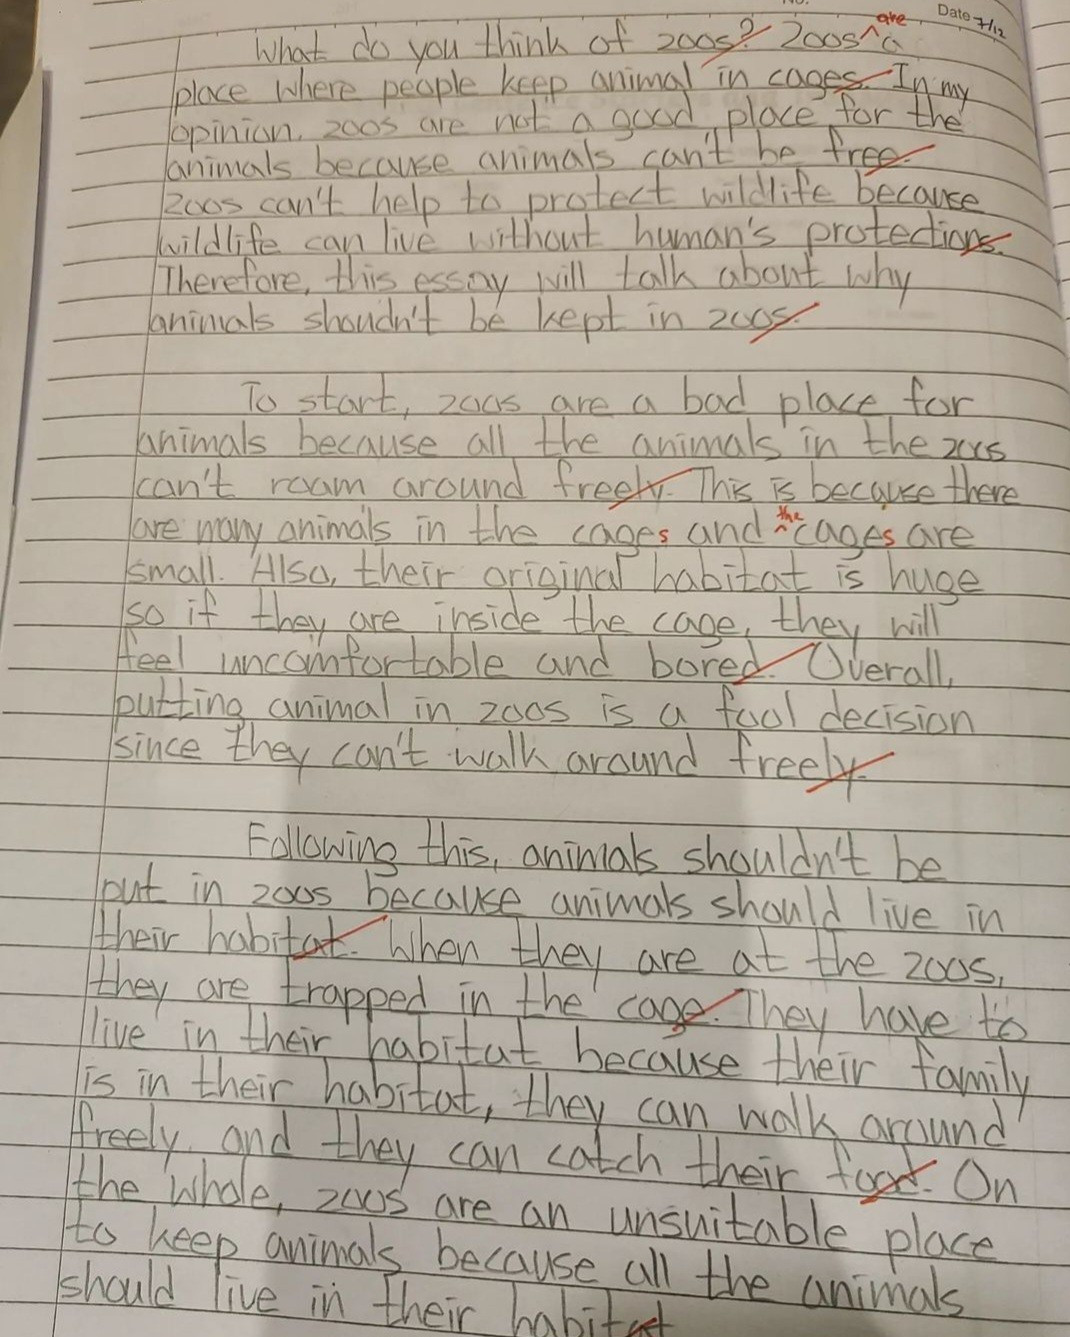 No.
Date 7/12
What do you think of zoos? Zoos ^are a
place where people keep animal in cages. In my
opinion, zoos are not a good place for the
animals because animals can't be free.
Zoos can't help to protect wildlife because
wildlife can live without human's protections.
Therefore, this essay will talk about why
animals shoudn't be kept in zoos.
To start, zoos are a bad place for
animals because all the animals in the zoos
can't roam around freely. This is because there
are many animals in the cages and ^the cages are
small. Also, their original habitat is huge
so if they are inside the cage, they will
feel uncomfortable and bored. Overall,
putting animal in zoos is a fool decision
since they can't walk around freely.
Following this, animals shouldn't be
put in zoos because animals should live in
their habitat. When they are at the zoos,
they are trapped in the cage. They have to
live in their habitat because their family
is in their habitat, they can walk around
freely, and they can catch their food. On
the whole, zoos are an unsuitable place
to keep animals because all the animals
should live in their habitat